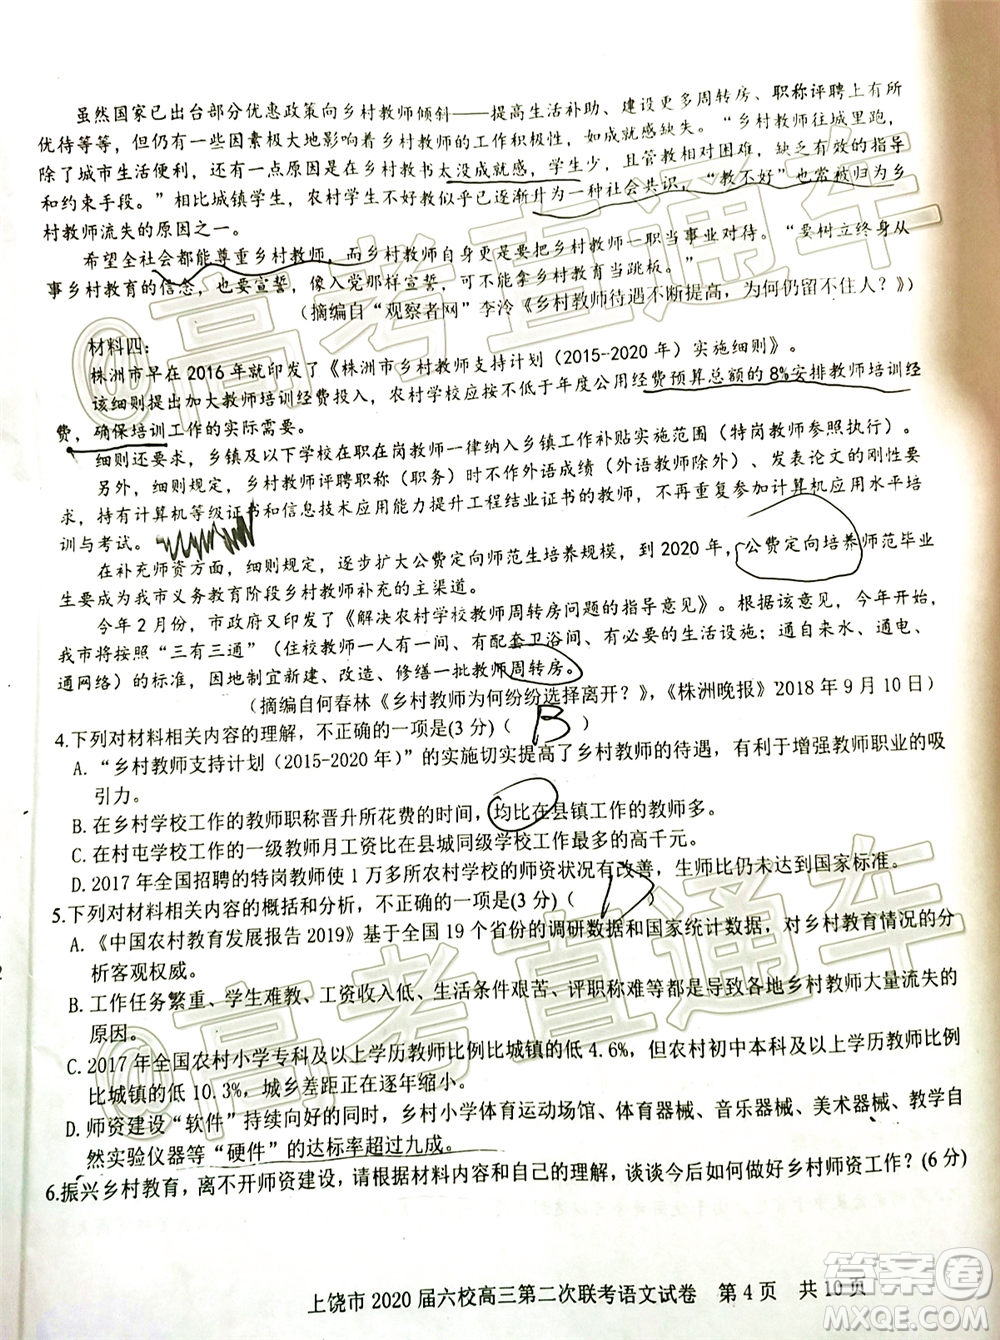 虽然国家已出台部分优惠政策向乡村教师倾斜——提高生活补助、建设更多周转房、职称评聘上的
优待等等，但仍有一些因素极大地影响着乡村教师的工作积极性，如成就感缺失。“乡村教师往城里跑，
除了城市生活便利，还有一点原因是在乡村教书太没成就感，学生少，且管教相对困难，缺乏有效的指导
和约束手段。”相比城镇学生，农村学生不好教似乎已逐渐升为一种社会共识，“教不好”也常被归为乡
村教师流失的原因之一。
希望全社会都能尊重乡村教师，而乡村教师自身更是要把乡村教师一职当事业对待。“要树立终身从
事乡村教育的信念，也要宣誓，像入党那样宣誓，不能将乡村教育当跳板。”
（摘编自“观察者网”李泠《乡村教师待遇不断提高，为何仍留不住人？》）
材料四：
株洲市早在 2016 年就印发了《株洲市乡村教师支持计划（2015-2020 年）实施细则》。
该细则提出加大教师培训经费投入，农村学校应按不低于年度公用经费预算总额的 8%安排教师培训经
费，确保培训工作的实际需要。
细则还要求，乡镇及以下学校在职在岗教师一律纳入乡镇工作补贴实施范围（特岗教师参照执行）。
另外，细则规定，乡村教师评聘职称（职务）时不作外语成绩（外语教师除外）、发表论文的刚性要
求，持有计算机等级证书和信息技术应用能力提升工程结业证书的教师，不再重复参加计算机应用水平培
训与考试。
在补充师资方面，细则规定，逐步扩大公费定向师范生培养规模，到 2020 年，公费定向培养师范毕业
生要成为我市义务教育阶段乡村教师补充的主渠道。
今年 2 月份，市政府又印发了《解决农村学校教师周转房问题的指导意见》。根据该意见，今年开始，
我市将按照“三有三通”（住校教师一人有一间、有配套卫浴间、有必要的生活设施；通自来水、通电、
通网络）的标准，因地制宜新建、改造、修缮一批教师周转房。
（摘编自何春林《乡村教师为何纷纷选择离开？》，《株洲晚报》2018 年 9 月 10 日）
4.下列对材料相关内容的理解，不正确的一项是(3 分)（ B ）
A.“乡村教师支持计划（2015-2020 年）”的实施切实提高了乡村教师的待遇，有利于增强教师职业的吸
引力。
B. 在乡村学校工作的教师职称晋升所花费的时间，均比在县镇工作的教师多。
C. 在村屯学校工作的一级教师月工资比在县城同级学校工作最多的高千元。
D. 2017 年全国招聘的特岗教师使 1 万多所农村学校的师资状况有改善，生师比仍未达到国家标准。
5.下列对材料相关内容的概括和分析，不正确的一项是(3 分)（ D ）
A.《中国农村教育发展报告 2019》基于全国 19 个省份的调研数据和国家统计数据，对乡村教育情况的分
析客观权威。
B. 工作任务繁重、学生难教、工资收入低、生活条件艰苦、评职称难等都是导致各地乡村教师大量流失的
原因。
C. 2017 年全国农村小学专科及以上学历教师比例比城镇的低 4.6%，但农村初中本科及以上学历教师比例
比城镇的低 10.3%，城乡差距正在逐年缩小。
D. 师资建设“软件”持续向好的同时，乡村小学体育运动场馆、体育器械、音乐器械、美术器械、数学自
然实验仪器等“硬件”的达标率超过九成。
6.振兴乡村教育，离不开师资建设，请根据材料内容和自己的理解，谈谈今后如何做好乡村师资工作？(6 分)
上饶市 2020 届六校高三第二次联考语文试卷 第 4 页 共 10 页
@高考直通车
@高考直通车
答案圈
MXQE.COM